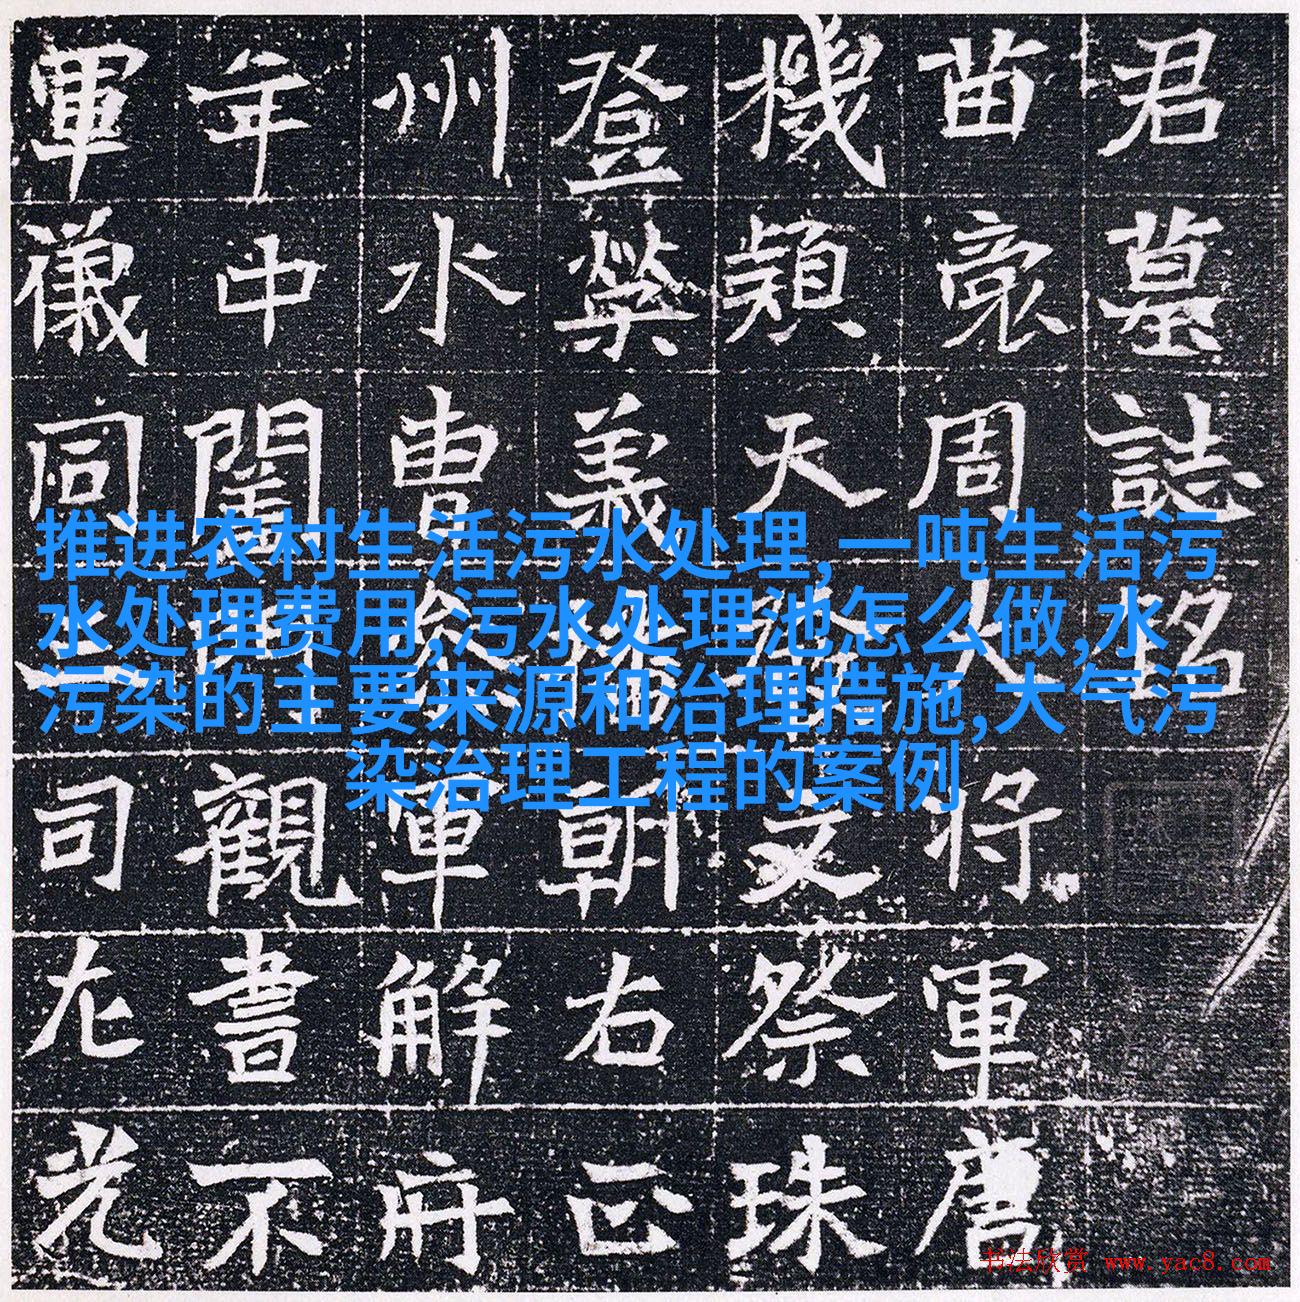 君墓誌銘
苗裔周人将軍
機穎天文祭珠
登榮義播朝右正
州水曹参軍解府
年中觀書不
軍儀同司左光
推进农村生活污水处理,一吨生活污
水处理费用,污水处理池怎么做,水
污染的主要来源和治理措施,大气污
染治理工程的案例
书法欣赏 www.yac8.com